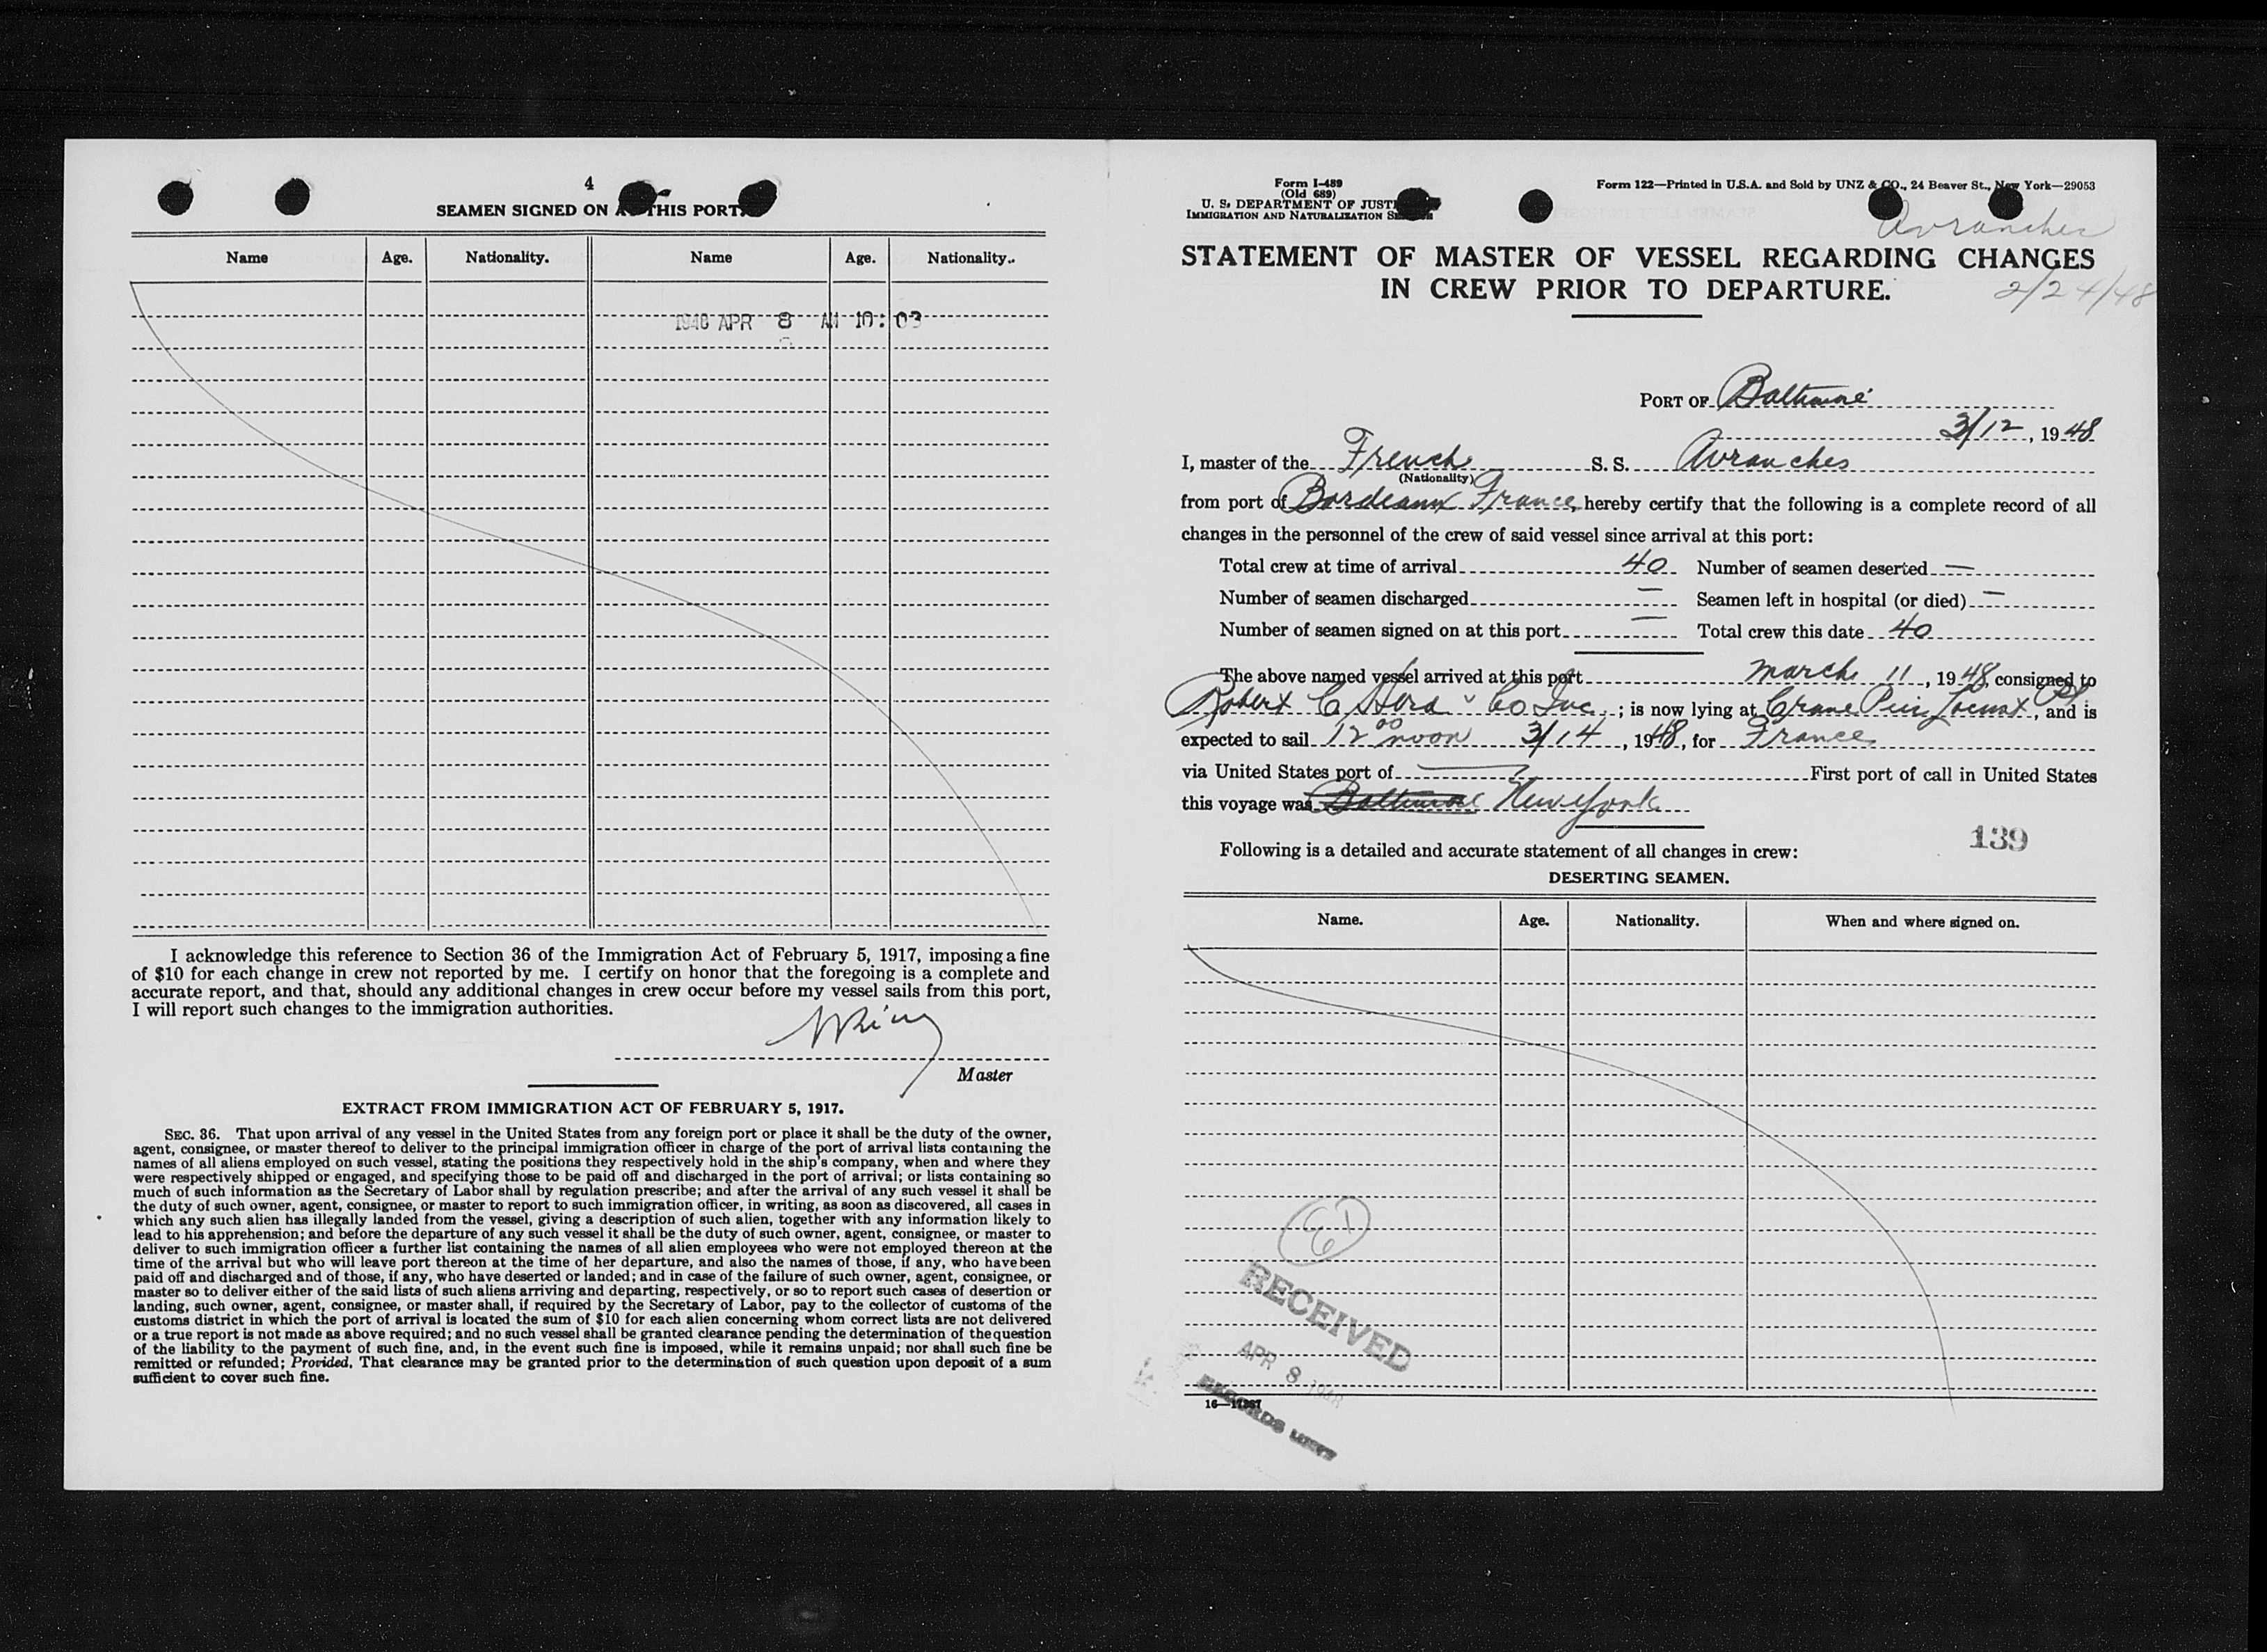 4
SEAMEN SIGNED ON AT THIS PORT.
Name Age. Nationality. Name Age. Nationality.
1948 APR 8 AM 10:03
I acknowledge this reference to Section 36 of the Immigration Act of February 5, 1917, imposing a fine
of $10 for each change in crew not reported by me. I certify on honor that the foregoing is a complete and
accurate report, and that, should any additional changes in crew occur before my vessel sails from this port,
I will report such changes to the immigration authorities.
Master
EXTRACT FROM IMMIGRATION ACT OF FEBRUARY 5, 1917.
SEC. 36. That upon arrival of any vessel in the United States from any foreign port or place it shall be the duty of the owner,
agent, consignee, or master thereof to deliver to the principal immigration officer in charge of the port of arrival lists containing the
names of all aliens employed on such vessel, stating the positions they respectively hold in the ship's company, when and where they
were respectively shipped or engaged, and specifying those to be paid off and discharged in the port of arrival; or lists containing so
much of such information as the Secretary of Labor shall by regulation prescribe; and after the arrival of any such vessel it shall be
the duty of such owner, agent, consignee, or master to report to such immigration officer, in writing, as soon as discovered, all cases in
which any such alien has illegally landed from the vessel, giving a description of such alien, together with any information likely to
lead to his apprehension; and before the departure of any such vessel it shall be the duty of such owner, agent, consignee, or master to
deliver to such immigration officer a further list containing the names of all alien employees who were not employed thereon at the
time of the arrival but who will leave port thereon at the time of her departure, and also the names of those, if any, who have been
paid off and discharged and of those, if any, who have deserted or landed; and in case of the failure of such owner, agent, consignee, or
master so to deliver either of the said lists of such aliens arriving and departing, respectively, or so to report such cases of desertion or
landing, such owner, agent, consignee, or master shall, if required by the Secretary of Labor, pay to the collector of customs of the
customs district in which the port of arrival is located the sum of $10 for each alien concerning whom correct lists are not delivered
or a true report is not made as above required; and no such vessel shall be granted clearance pending the determination of the question
of the liability to the payment of such fine, and, in the event such fine is imposed, while it remains unpaid; nor shall such fine be
remitted or refunded; Provided, That clearance may be granted prior to the determination of such question upon deposit of a sum
sufficient to cover such fine.
Form I-489
(Old 689)
U. S. DEPARTMENT OF JUSTICE
IMMIGRATION AND NATURALIZATION SERVICE
Form 122—Printed in U.S.A. and Sold by UNZ & CO., 24 Beaver St., New York—29053
Avranches
STATEMENT OF MASTER OF VESSEL REGARDING CHANGES
IN CREW PRIOR TO DEPARTURE.
2/24/48
PORT OF Baltimore
3/12, 1948
I, master of the French S. S. Avranches
(Nationality)
from port of Bordeaux France, hereby certify that the following is a complete record of all
changes in the personnel of the crew of said vessel since arrival at this port:
Total crew at time of arrival 40 Number of seamen deserted —
Number of seamen discharged — Seamen left in hospital (or died) —
Number of seamen signed on at this port — Total crew this date 40
The above named vessel arrived at this port March 11, 1948, consigned to
Robert C Herd & Co Inc.; is now lying at Crane Pier Locust Pt, and is
expected to sail 12 00 noon 3/14, 1948, for France
via United States port of — First port of call in United States
this voyage was Baltimore New York
139
Following is a detailed and accurate statement of all changes in crew:
DESERTING SEAMEN.
Name. Age. Nationality. When and where signed on.
RECEIVED
APR 8 1948
RECORDS UNIT
16—11267